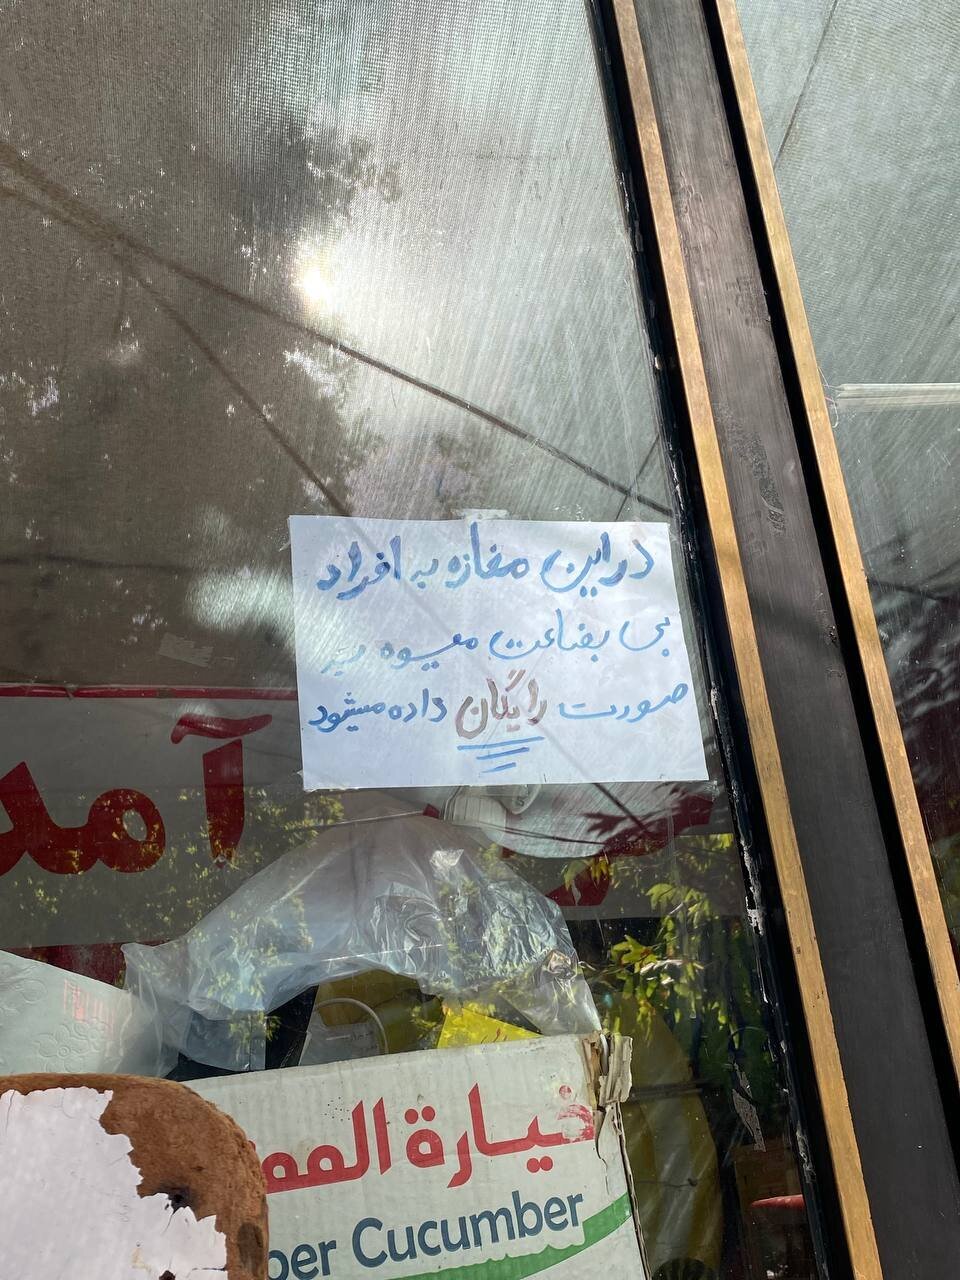 در این مغازه به افراد
بی بضاعت میوه به
صورت رایگان داده میشود
آمد
خيارة المم
per Cucumber